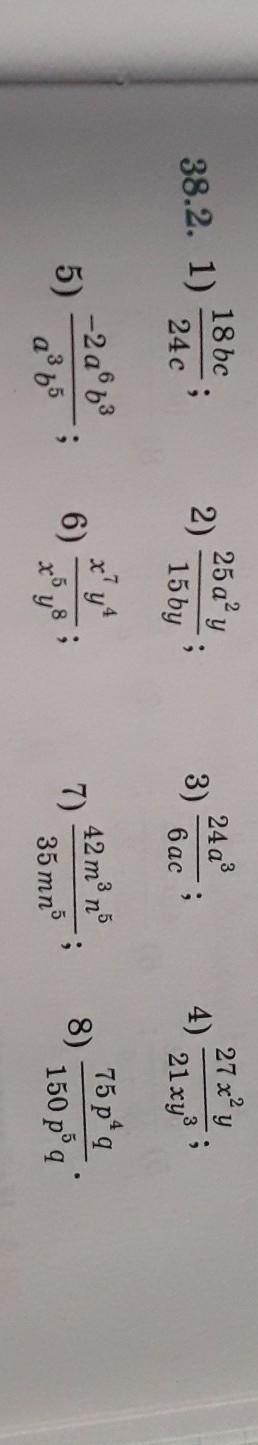 38.2. 1) 18bc/24c; 2) 25a²y/15by; 3) 24a³/6ac; 4) 27x²y/21xy³;
5) -2a⁶b³/a³b⁵; 6) x⁷y⁴/x⁵y⁸; 7) 42m³n⁵/35mn⁵; 8) 75p⁴q/150p⁵q.